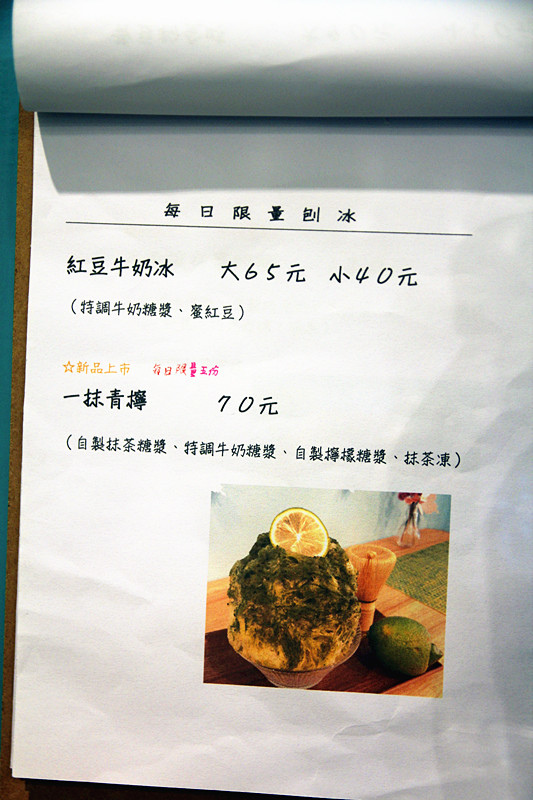 每日限量刨冰
紅豆牛奶冰 大65元 小40元
（特調牛奶糖漿、蜜紅豆）
☆新品上市 每日限量五份
一抹青檸 70元
（自製抹茶糖漿、特調牛奶糖漿、自製檸檬糖漿、抹茶凍）